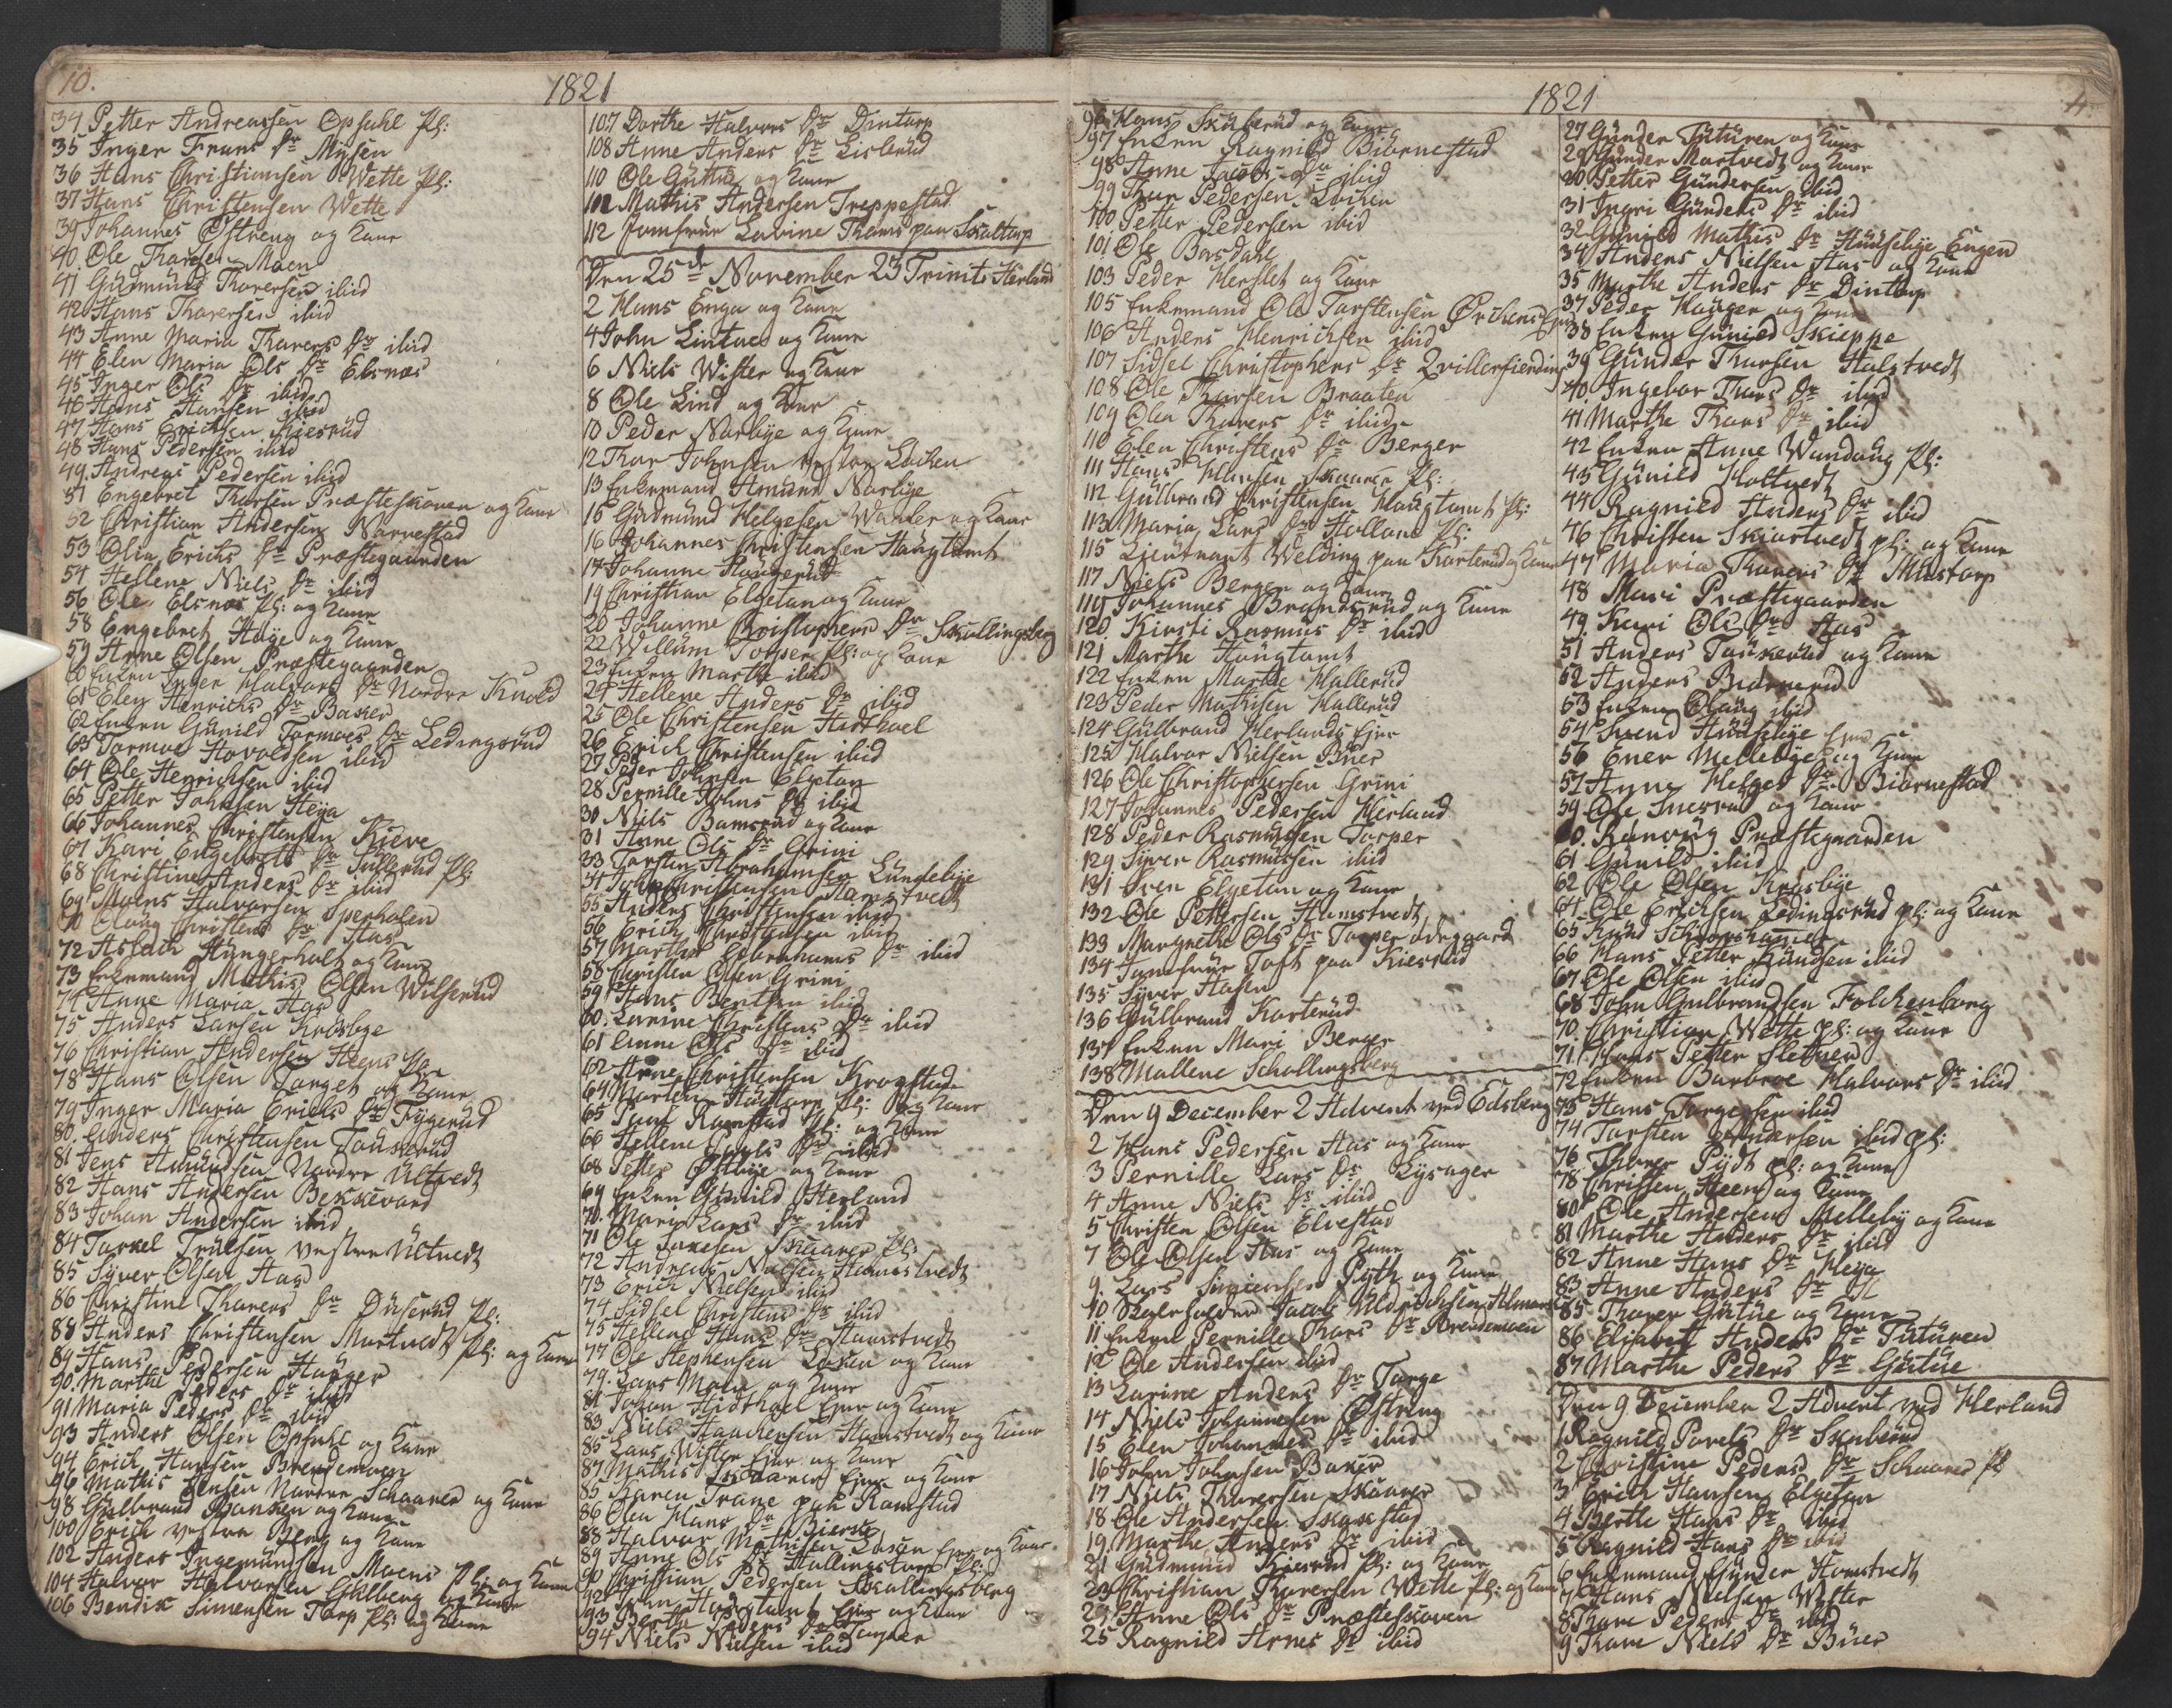 10.
1821
34 Petter Andreassen Opsahl Pl:
35 Inger Frans Dr Mysen
36 Hans Christiansen Wette Pl:
37 Hans Christensen Wette
39 Johannes Østreng og Kone
40 Ole Thorsen Moen
41 Gudmund Thoresen ibid
42 Hans Thoresen ibid
43 Anne Maria Thorers Dr ibid
44 Elen Maria Ols Dr Elsnæs
45 Inger Ols Dr ibid
46 Hans Hansen ibid
47 Hans Erichsen Kiesrud
48 Hans Pedersen ibid
49 Andreas Pedersen ibid
51 Engebret Thorsen Præsteskoven og Kone
52 Christian Andersen Narvestad
53 Olia Erichs Dr Præstegaarden
54 Hellene Niels Dr ibid
56 Ole Elsnæs Pl: og Kone
58 Engebret Høye og Kone
59 Arne Olsen Præstegaarden
60 Enken Inger Halvors Dr Nordre Knold
61 Elen Henrichs Dr Baxer
62 Enken Gunild Tormoes Dr Ledingsrud
63 Tormoe Hovoldsen ibid
64 Ole Henrichsen ibid
65 Petter Johnsen Heya
66 Johannes Christensen Kieve
67 Kari Engebrets Dr Pl:
68 Christine Anders Dr ibid
69 Moens Halvorsen Sperholen
70 Olaug Christens Dr Aas
72 Aslach Hungerholt og Kone
73 Enkemand Mathis Olsen Wilserud
74 Anne Maria Aas
75 Anders Larsen Krosbye
76 Christian Andersen Heens
78 Hans Olsen Torget og Kone
79 Inger Maria Erichs Dr Fygerud
80 Anders Christensen Touserud
81 Jens Amundsen Nordre Ultvedt
82 Hans Andersen Bekkevard
83 Johan Andersen ibid
84 Torkel Trulsen vestre Ultvedt
85 Syver Olsen Aas
86 Christine Thorers Dr Duserud Pl:
88 Anders Christensen Mortvedt Pl: og Kone
89 Hans Pedersen Hauger
90 Marthe Peders Dr ibid
91 Maria Peders Dr ibid
93 Anders Olsen Opsahl og Kone
94 Erich Hansen Brendemoen
96 Mathis Jensen Nordre Schaarer og Kone
98 Gulbrand Hansen og Kone
100 Erich vestre Berg og Kone
102 Anders Ingemundsen Moens Pl: og Kone
104 Halvor Halvorsen Gislberg og Kone
106 Bendix Simensen Torp Pl: og Kone
107 Dorthe Halvors Dr Dintorp
108 Anne Anders Dr Lislerud
110 Ole Gutue og Kone
111 Mathis Andersen Treppestad
112 Jomfrue Lovine Thams paa Skaltorp
Den 25de November 23 Trinit: Herland
2 Hans Enga og Kone
4 John Lintoe og Kone
6 Niels Wister og Kone
8 Ole Lind og Kone
10 Peder Narbye og Kone
12 Thor Johnsen vestre Løchen
13 Enkemand Amund Narbye
15 Gudmund Helgesen Warler og Kone
16 Johannes Christensen Haugtomt
17 Johanne Haugerud
19 Christian Elgetun og Kone
20 Johanne Christophers Dr Skullingsberg
22 Willum Torper Pl: og Kone
23 Enken Marthe ibid
24 Hellene Anders Dr ibid
25 Ole Christensen Hidthoel
26 Erich Christensen ibid
27 Peder Johnsen Elgetun
28 Pernille Johns Dr ibid
30 Niels Bamsrud og Kone
31 Anne Ols Dr Grini
33 Torsten Abrahamsen Lundebye
34 John Christensen Hamstvedt
55 Anders Christensen ibid
56 Erich Christensen ibid
57 Marthe Abrahams Dr ibid
58 Christen Olsen Grini
59 Hans Bentsen ibid
60 Lovine Christens Dr ibid
61 Anne Ols Dr ibid
62 Arne Christensen Krogstad
64 Morten Pl: og Kone
65 Poul Ramstad Pl: og Kone
66 Hellene Povels Dr ibid
68 Petter Østbye og Kone
69 Enken Gunild Herland
70 Mari Lars Dr ibid
71 Ole Larsen Skaarer Pl:
72 Andreas Nielsen Hamstvedt
73 Erich Nielsen ibid
74 Sidsel Christens Dr ibid
75 Hellene Hans Dr Hamstvedt
77 Ole Stephensen Løken og Kone
79 Lars Moen og Kone
81 Johan Hidthoel Ejer og Kone
83 Niels Haachensen Hamstvedt og Kone
85 Lars Wister Ejer og Kone
87 Mathis Skaarer Ejer og Kone
85 Karen Trane paa Ramstad
86 Olea Hans Dr Biersted
88 Halvor Mathisen Løken Ejer og Kone
89 Anne Ols Dr Hallingstorp Pl:
90 Christian Pedersen Skallingsberg
92 John Haugtomt Ejer og Kone
93 Berthe Peders Dr Torper
94 Niels Nielsen ibid
1821
4
96 Hans Skuberud og Kone
97 Enken Ragnild Biørnestad
98 Anne Jacobs Dr ibid
99 Thor Pedersen Løchen
100 Petter Pedersen ibid
101 Ole Borsdahl
103 Peder Herslet og Kone
105 Enkemand Ole Torstensen Ørchens Ejer
106 Anders Henrichsen ibid
107 Sidsel Christophers Dr Qvillerfierding
108 Ole Thorsen Braaten
109 Olea Thorers Dr ibid
110 Elen Christens Dr Berger
111 Hans Hansen Skaarer Pl:
112 Gulbrand Christensen Haugtomt Pl:
113 Maria Lars Dr Holland Pl:
115 Lieutnant Welding paa Karterud og Kone
117 Niels Berger og Kone
119 Johannes Brandsrud og Kone
120 Kirsti Rasmus Dr ibid
121 Marthe Haugtomt
122 Enken Marthe Hallerud
123 Peder Mathisen Hallerud
124 Gulbrand Herlands Ejer
125 Halvor Nielsen Buer
126 Ole Christophersen Grini
127 Johannes Pedersen Herland
128 Peder Rasmussen Torper
129 Syver Rasmussen ibid
131 Sven Elgetun og Kone
132 Ole Pettersen Hamstvedt
133 Margrethe Ols Dr Torper ødegaard
134 Jomfrue Toft paa Kiesrud
135 Syver Hafsen
136 Gulbrand Karterud
137 Enken Mari Berger
138 Mallene Schollingsberg
Den 9 December 2 Advent ved Edsberg
2 Hans Pedersen Aas og Kone
3 Pernille Lars Dr Rysager
4 Anne Niels Dr ibid
5 Christen Olsen Elvestad
7 Ole Olsen Aas og Kone
9 Lars Pyth og Kone
10 Skoleholder Jacob
11 Enken Pernille Thors Dr Brendemoen
12 Ole Andersen ibid
13 Larine Anders Dr Torge
14 Niels Johannesen Østreng
15 Elen Johannes Dr ibid
16 John Johnsen Baxer
17 Niels Thoresen Skaarer
18 Ole Andersen Skakstad
19 Marthe Anders Dr ibid
21 Gudmund Kiesrud Pl: og Kone
23 Christian Thoresen Wette Pl: og Kone
24 Anne Ols Dr Præsteskoven
25 Ragnild Arnes Dr ibid
27 Gunder Tuturen og Kone
29 Gunder Mortvedt og Kone
30 Petter Gundersen ibid
31 Ingri Gunders Dr ibid
32 Gunild Mathis Dr Huuselye Engen
34 Anders Nielsen Aas og Kone
35 Marthe Anders Dr Dintorp
37 Peder Hauger og Kone
38 Enken Gunild Skieppe
39 Gunder Thorsen Halstvedt
40 Ingebor Thors Dr ibid
41 Marthe Thors Dr ibid
42 Enken Anne Wandaug Pl:
43 Gunild Holtvedt
44 Ragnild Anders Dr ibid
46 Christen Skiørtvedt pl: og Kone
47 Maria Thorers Dr Mustorp
48 Mari Præstegaarden
49 Kari Ols Dr Aas
51 Anders Touserud og Kone
52 Anders Biørnerud
53 Enken Olaug ibid
54 Svend Huuselye Ejer
56 Ener Mellebye og Kone
57 Anne Helges Dr Biørnestad
59 Ole Snesrud og Kone
60 Ranvug Præstegaarden
61 Gunild ibid
62 Ole Olsen Krosbye
64 Ole Erichsen Ledingsrud pl: og Kone
65 Knud
66 Hans Petter Knudsen ibid
67 Ole Olsen ibid
68 John Gulbrandsen Folchenborg
70 Christian Wette pl: og Kone
71 Hans Petter Sletner
72 Enken Barbroe Halvors Dr ibid
73 Hans Torgersen ibid
74 Torsten Andersen ibid pl:
76 Thorer Pydt pl: og Kone
78 Christen Heen og Kone
80 Ole Andersen Melleby og Kone
81 Marthe Anders Dr ibid
82 Anne Hans Dr Heya
83 Anne Anders Dr
85 Thorer Gutue og Kone
86 Elisabeth Anders Dr Tuturen
87 Marthe Peders Dr Gutue
Den 9 December 2 Advent ved Herland
1 Ragnild Povels Dr Skuberud
2 Christine Peders Dr Schaarer Pl
3 Erich Hansen Elgetun
4 Berthe Hans Dr ibid
5 Ragnild Hans Dr ibid
6 Enkemand Gunder Homstvedt
7 Hans Nielsen Wister
8 Thore Peders Dr ibid
9 Thore Niels Dr Buer